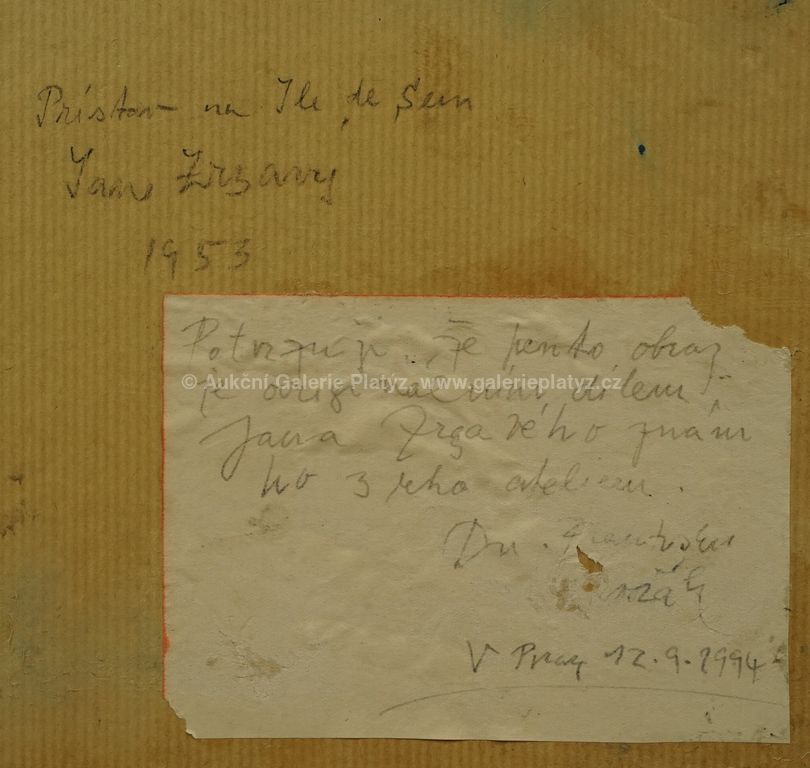 Přístav na Ile de Sein
Jan Zrzavý
1953
Potvrzuji, že tento obraz
© Aukční Galerie Platýz, www.galerieplatyz.cz
je originálním dílem
Jana Zrzavého znám
ho z jeho atelieru.
Dr. František
V Praz 12.9.1994